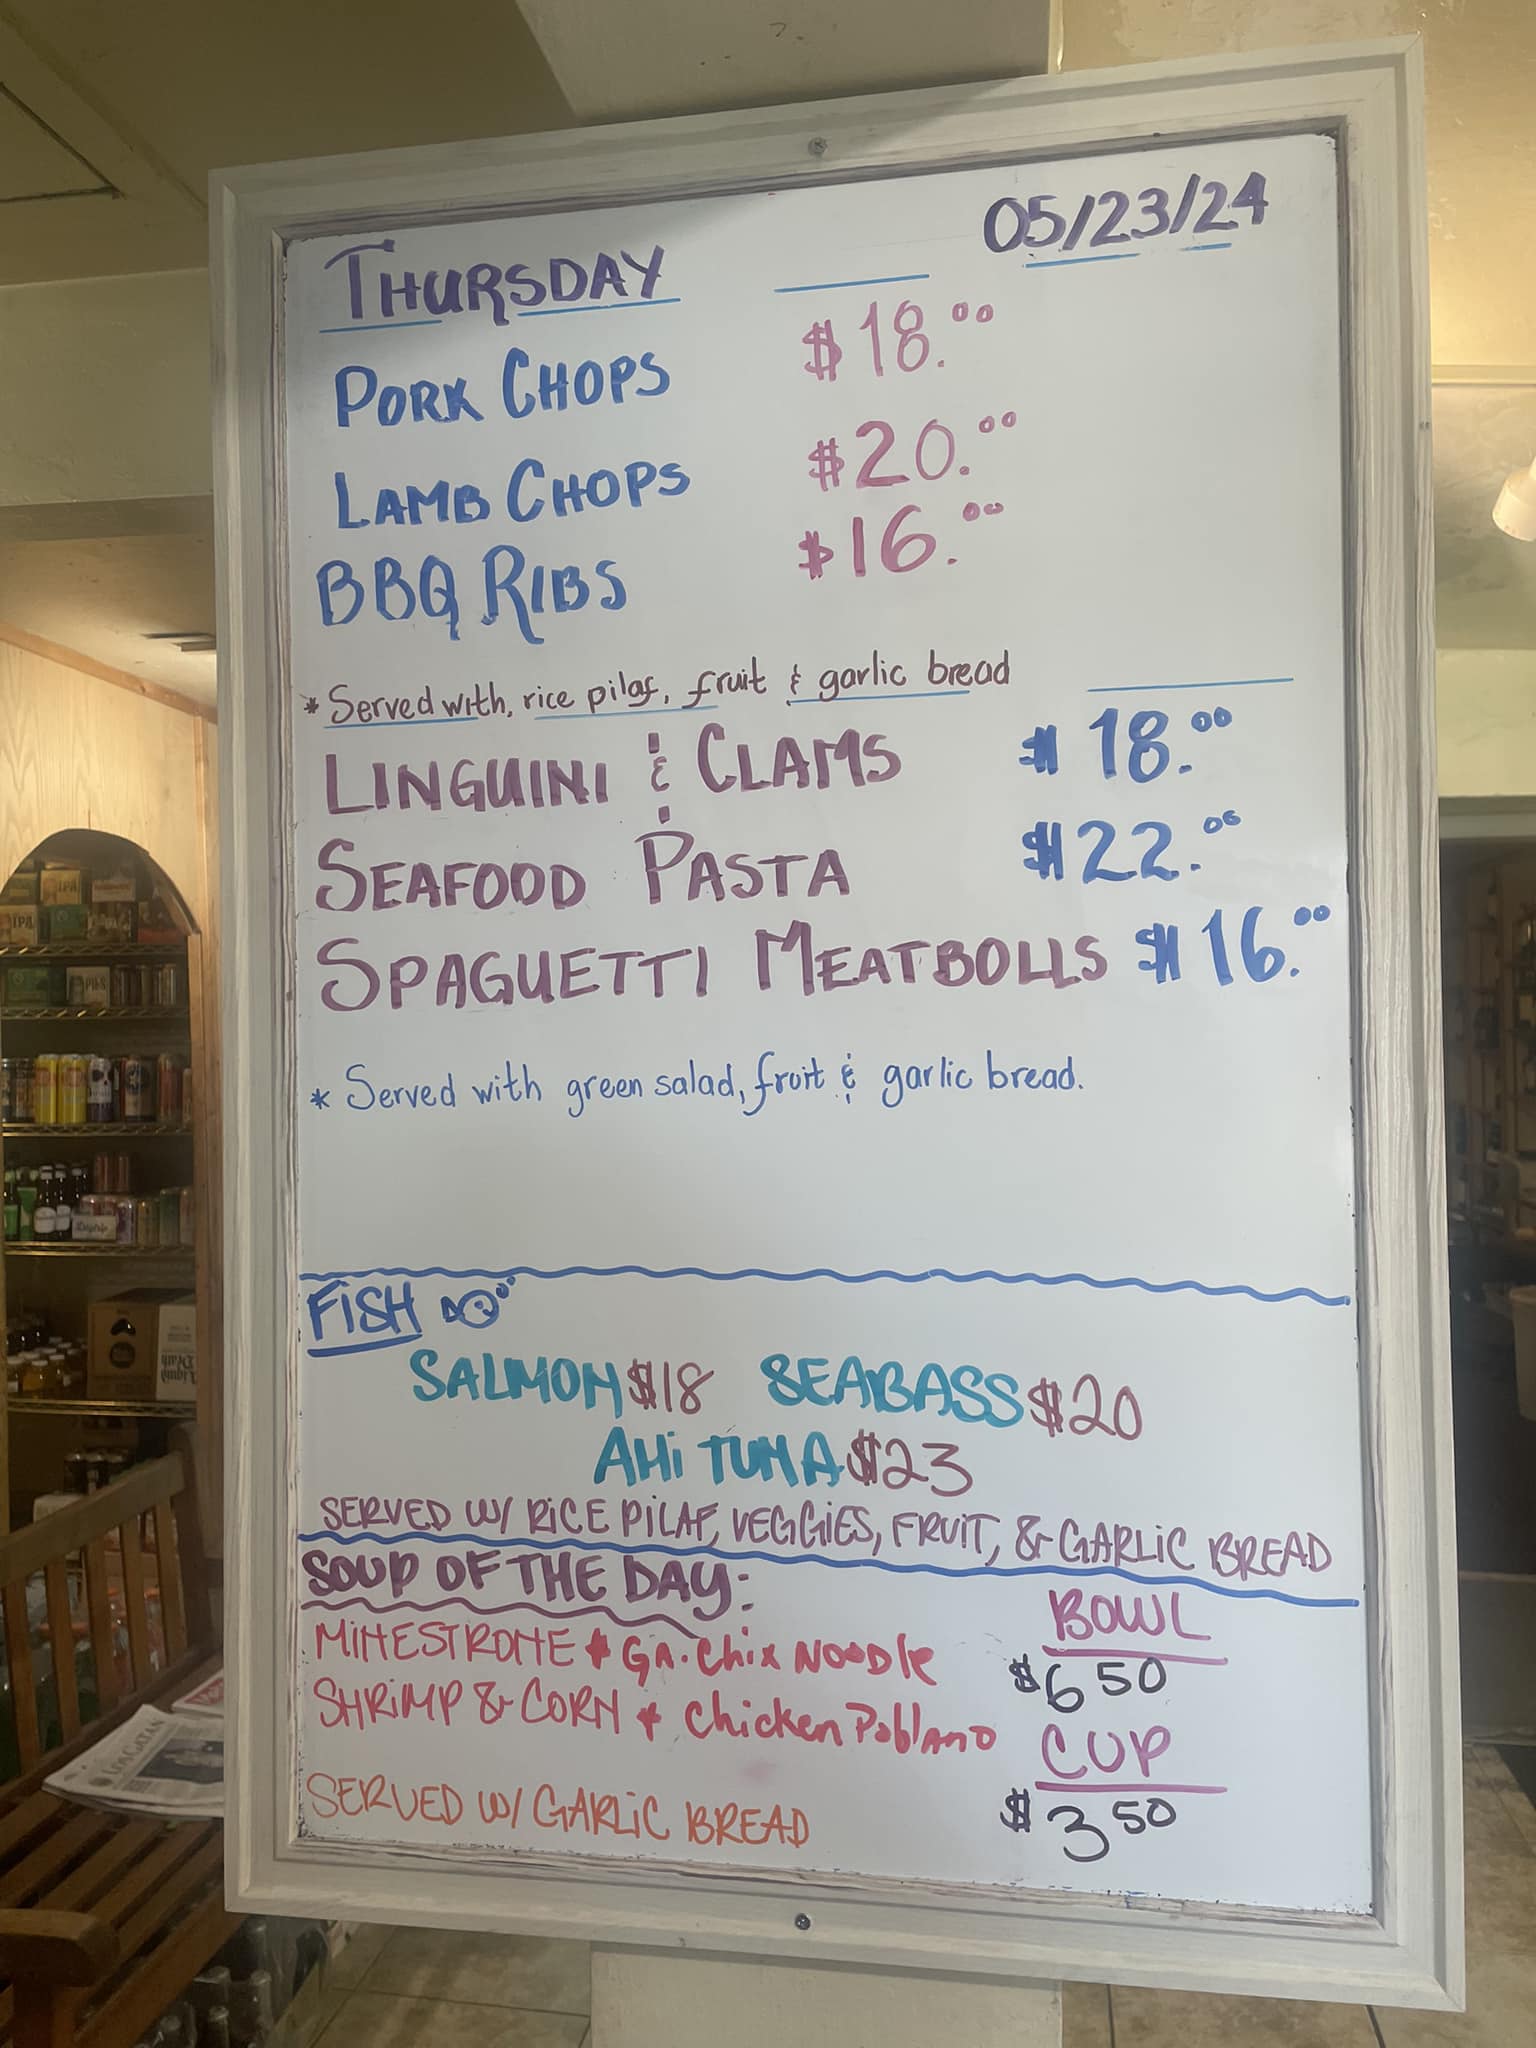 THURSDAY 05/23/24
PORK CHOPS $18.00
LAMB CHOPS $20.00
BBQ RIBS $16.00
* Served with, rice pilaf, fruit & garlic bread
LINGUINI & CLAMS $18.00
SEAFOOD PASTA $22.00
SPAGUETTI MEATBOLLS $16.00
* Served with green salad, fruit & garlic bread.
FISH
SALMON $18 SEABASS $20
AHi TUNA $23
SERVED W/ RiCE PiLAF, VEGGiES, FRUiT, & GARLiC BREAD
SOUP OF THE DAY:
MiNESTRONE & Gn. Chix NOODle
SHRiMP & CORN & Chicken PoblAno
SERVED W/ GARLiC BREAD
BOWL
$6 50
CUP
$3 50
IPA
IPA
PILS